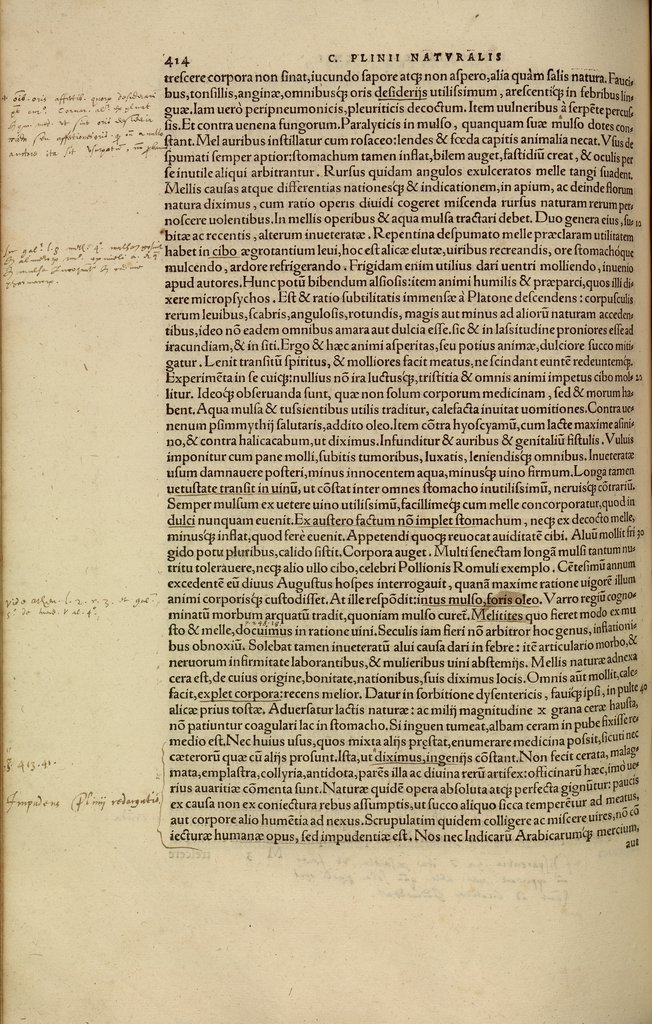 414 C. PLINII NATVRALIS
trescere corpora non sinat, iucundo sapore atq; non aspero, alia quàm salis natura. Fauci-
bus, tonsillis, anginæ, omnibusq; oris desiderijs utilissimum, arescentiq; in febribus lin-
guæ. Iam uerò peripneumonicis, pleuriticis decoctum. Item uulneribus à serpēte percus-
sis. Et contra uenena fungorum. Paralyticis in mulso, quanquam suæ mulso dotes con-
stant. Mel auribus instillatur cum rosaceo: lendes & fœda capitis animalia necat. Vsus de
spumati semper aptior: stomachum tamen inflat, bilem auget, fastidiū creat, & oculis per
se inutile aliqui arbitrantur. Rursus quidam angulos exulceratos melle tangi suadent.
Mellis causas atque differentias nationesq; & indicationem, in apium, ac deinde florum
natura diximus, cum ratio operis diuidi cogeret miscenda rursus naturam rerum per-
noscere uolentibus. In mellis operibus & aqua mulsa tractari debet. Duo genera eius, su- 10
bitæ ac recentis, alterum inueteratæ. Repentina despumato melle præclaram utilitatem
habet in cibo ægrotantium leui, hoc est alicæ elutæ, uiribus recreandis, ore stomachóque
mulcendo, ardore refrigerando. Frigidam enim utilius dari uentri molliendo, inuenio
apud autores. Hunc potū bibendum alsiosis: item animi humilis & præparci, quos illi di-
xere micropsychos. Est & ratio subtilitatis immensæ à Platone descendens: corpusculis
rerum leuibus, scabris, angulosis, rotundis, magis aut minus ad aliorū naturam acceden-
tibus, ideo nō eadem omnibus amara aut dulcia esse. sic & in lassitudine proniores esse ad
iracundiam, & in siti. Ergo & hæc animi asperitas, seu potius animæ, dulciore succo miti-
gatur. Lenit transitū spiritus, & molliores facit meatus, ne scindant euntē redeuntemq;.
Experimēta in se cuiq;: nullius nō ira luctusq;, tristitia & omnis animi impetus cibo mol- 20
litur. Ideoq; obseruanda sunt, quæ non solum corporum medicinam, sed & morum ha-
bent. Aqua mulsa & tussientibus utilis traditur, calefacta inuitat uomitiones. Contra ue-
nenum psimmythij salutaris, addito oleo. Item cōtra hyoscyamū, cum lacte maxime asini-
no, & contra halicacabum, ut diximus. Infunditur & auribus & genitaliū fistulis. Vuluis
imponitur cum pane molli, subitis tumoribus, luxatis, leniendisq; omnibus. Inueteratæ
usum damnauere posteri, minus innocentem aqua, minusq; uino firmum. Longa tamen
uetustate transit in uinū, ut cōstat inter omnes stomacho inutilissimū, neruisq; cōtrariū.
Semper mulsum ex uetere uino utilissimū, facillimeq; cum melle concorporatur, quod in
dulci nunquam euenit. Ex austero factum nō implet stomachum, neq; ex decocto melle,
minusq; inflat, quod ferè euenit. Appetendi quoq; reuocat auiditatē cibi. Aluū mollit fri 30
gido potu pluribus, calido sistit. Corpora auget. Multi senectam longā mulsi tantum nu-
tritu tolerauere, neq; alio ullo cibo, celebri Pollionis Romuli exemplo. Cētesimū annum
excedentē eū diuus Augustus hospes interrogauit, quanā maxime ratione uigorē illum
animi corporisq; custodisset. At ille respōdit: intus mulso, foris oleo. Varro regiū cogno-
minatū morbum arquatū tradit, quoniam mulso curet. Melitites quo fieret modo ex mu
sto & melle, docuimus in ratione uini. Seculis iam fieri nō arbitror hoc genus, inflationi-
bus obnoxiū. Solebat tamen inueteratū alui causa dari in febre: itē articulario morbo, &
neruorum infirmitate laborantibus, & mulieribus uini abstemijs. Mellis naturæ adnexa
cera est, de cuius origine, bonitate, nationibus, suis diximus locis. Omnis aūt mollit, cale-
facit, explet corpora: recens melior. Datur in sorbitione dysentericis, fauiq; ipsi, in pulte 40
alicæ prius tostæ. Aduersatur lactis naturæ: ac milij magnitudine x grana ceræ hausta,
nō patiuntur coagulari lac in stomacho. Si inguen tumeat, albam ceram in pube fixisse re-
medio est. Nec huius usus, quos mixta alijs præstat, enumerare medicina possit, sicuti nec
cæterorū quæ cū alijs prosunt. Ista, ut diximus, ingenijs cōstant. Non fecit cerata, malag-
mata, emplastra, collyria, antidota, parēs illa ac diuina rerū artifex: officinarū hæc, imò ue-
rius auaritiæ cōmenta sunt. Naturæ quidē opera absoluta atq; perfecta gignūtur: paucis
ex causa non ex coniectura rebus assumptis, ut succo aliquo sicca temperētur ad meatus,
aut corpore alio humētia ad nexus. Scrupulatim quidem colligere ac miscere uires, nō cō
iecturæ humanæ opus, sed impudentiæ est. Nos nec Indicarū Arabicarumq; mercium,
aut
p. 413. 41.
Impudens Plinij redargutio